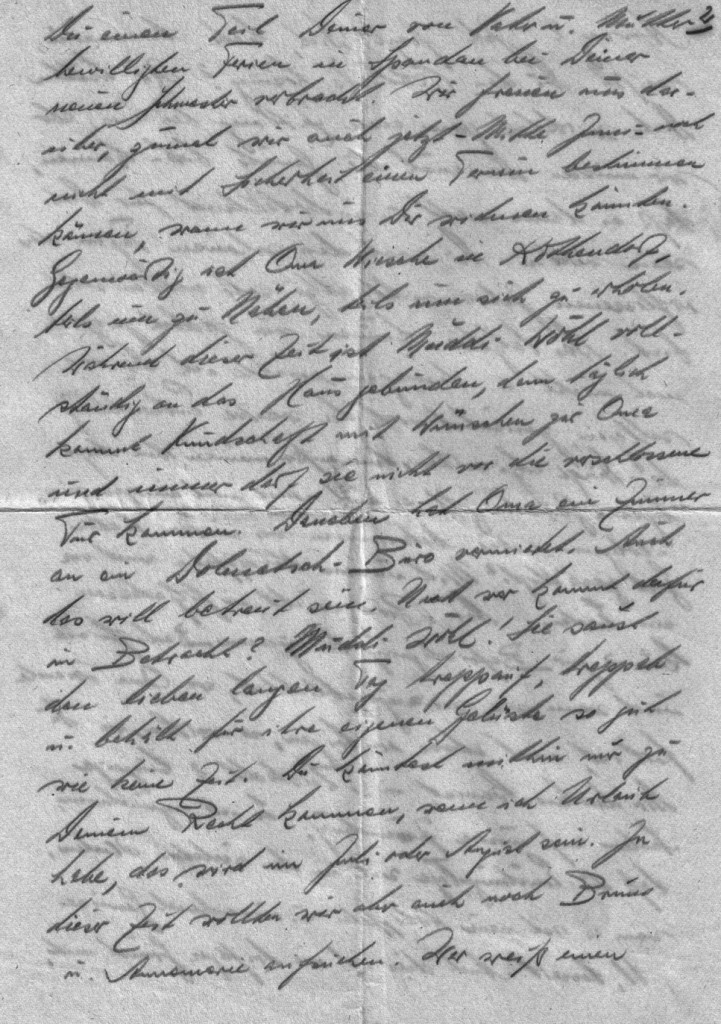 Du einen Teil Deiner von Vater u. Mutter 2)
bewilligten Ferien in Spandau bei Deiner
neuen Schwester verbracht. Wir freuen uns dar-
über, wir auch jetzt - Mitte Juni - noch
nicht mit Sicherheit einen Termin bestimmen
können, wann wir uns Dir widmen könnten.
Gegenwärtig ist Oma in
teils um zu Nähen, teils um sich zu erholen.
Während dieser Zeit ist Muddi Wöhl voll-
ständig an das Haus gebunden, denn täglich
kommt Kundschaft mit Wünschen zur Oma
und immer darf sie nicht vor die verschlossene
Tür kommen. Daneben hat Oma ein Zimmer
an ein Dolmetsch-Büro vermietet. Auch
das will betreut sein. Und wer kommt dafür
in Betracht? Muddi Wöll! Sie saust
den lieben langen Tag treppauf, treppab
u. behält für ihre eigenen Gelüste so gut
wie keine Zeit. Du könntest mithin nur zu
Deinem Recht kommen, wenn ich Urlaub
habe, das wird im Juli oder August sein. In
dieser Zeit wollten wir aber auch noch Bruno
u. Annemarie aufsuchen. Wer weiß einen